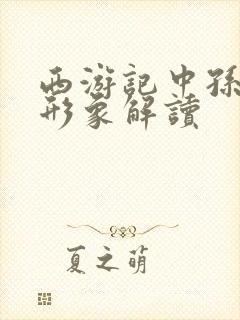 西游記中孫
形象解讀
夏之萌